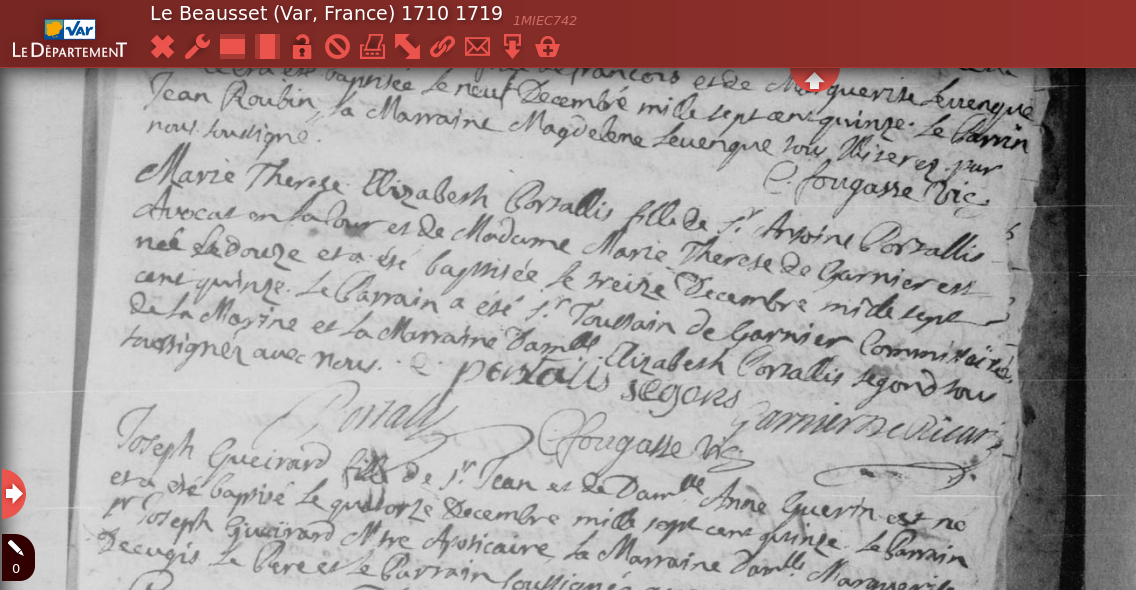 Le Beausset (Var, France) 1710 1719
1MIEC742
VAR
LE DÉPARTEMENT
a esté baptisée Le neuf Decembre mille sept cent quinze. Le Parrin
Jean Roubin, La Marraine Magdelene Leuenque
nous soussigné.
C. fougasse Vic
Marie Therese Elizabesh Portallis fille de Sr. Antoine Portallis
Avocat en la Cour et de Madame Marie Therese de Garnier est
neé Le douze et a été baptisée le treize Decembre mille sept
cent quinze. Le Parrain a été Sr Toussain de Garnier Commissaire
de la Marine et La Marraine Damlle. Elizabesh Portallis segond sous
soussignez avec nous.
portalis segons
Portalis
Cfougasse Vic
garnier
Joseph Gueirard fills de Sr. Jean et de Damlle Anne Guerin est né
et a été baptisé Le quatorze Decembre mille sept cent quinze. Le Parrain
Sr Joseph Gueirard Mtre Apoticaire La Marraine Damlle Marguerite
Decugis Le Pere et Le Parrain soussignés
0